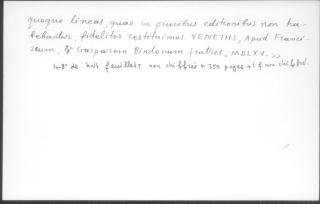 quoque lineas, quae in prioribus editionibus non ha-
bebantur, fideliter restituimus. VENETIIS, Apud Franci-
scum, & Gasparem Bindonum fratres, MDLXV. >>
In-8° de huit feuillets non chiffrés + 350 pages + 1 f. non chiffré.